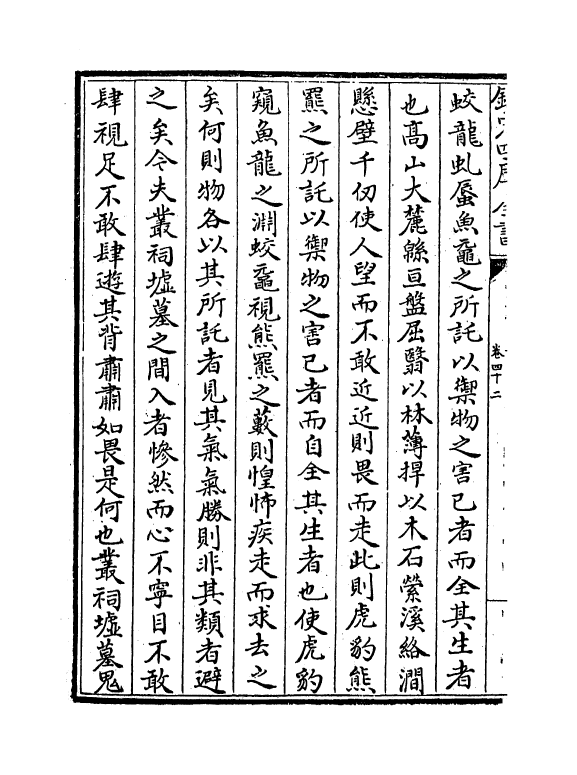 欽定四庫全書
卷四十二
蛟龍虬蜃魚黿之所託以禦物之害已者而全其生者
也髙山大麓緜亘盤屈翳以林薄捍以木石縈溪絡澗
懸壁千仞使人望而不敢近近則畏而走此則虎豹熊
羆之所託以禦物之害已者而自全其生者也使虎豹
窺魚龍之淵蛟黿視熊羆之藪則惶怖疾走而求去之
矣何則物各以其所託者見其氣氣勝則非其類者避
之矣今夫叢祠墟墓之間入者慘然而心不寧目不敢
肆視足不敢肆逰其背肅肅如畏是何也叢祠墟墓鬼